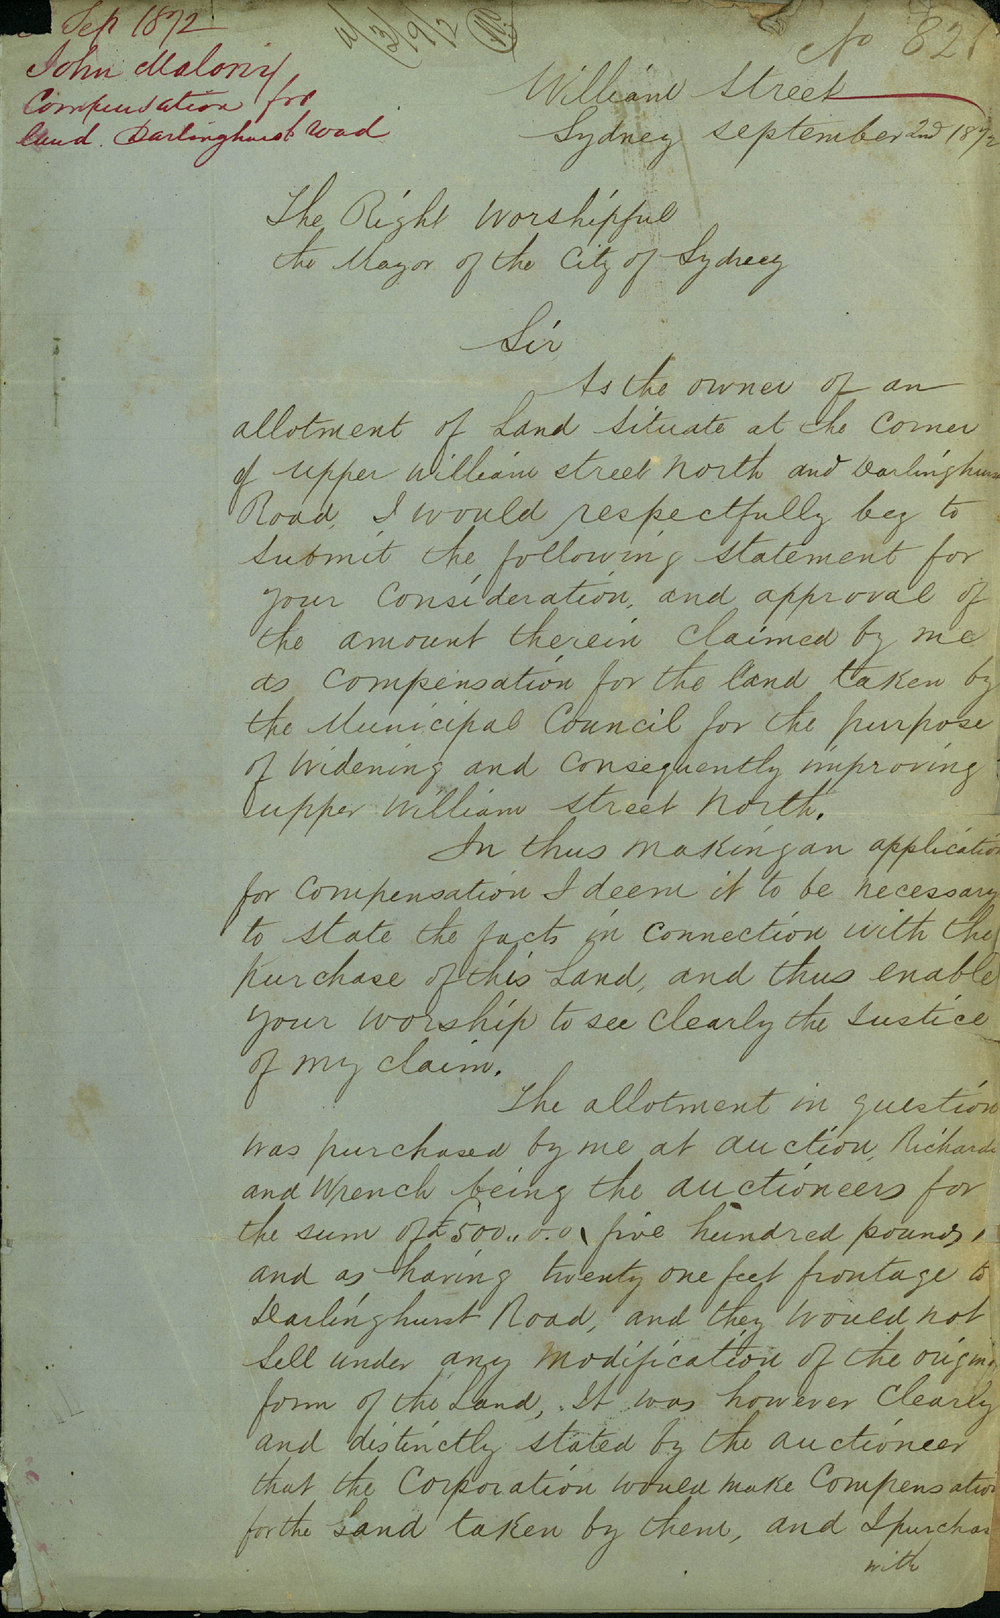 Sep 1872
John Malony
Compensation for
land. Darlinghurst Road
4/3/9/2
No 821
William Street
Sydney September 2nd 1872
The Right Worshipful
the Mayor of the City of Sydney
Sir
As the owner of an
allotment of Land situate at the Corner
of upper William street North and Darlinghurst
Road, I would respectfully beg to
submit the following statement for
your Consideration, and approval of
the amount therein Claimed by me
as Compensation for the land taken by
the Municipal Council for the purpose
of widening and Consequently improving
upper William Street North.
In thus making an application
for Compensation I deem it to be necessary
to state the facts in Connection with the
purchase of this Land, and thus enable
your worship to see Clearly the Justice
of my claim.
The allotment in question
was purchased by me at auction, Richards
and Wrench being the auctioneers for
the sum of £500..0.0, five hundred pounds,
and as having twenty one feet frontage to
Darlinghurst Road, and they would not
sell under any modification of the origina
form of the Land, It was however Clearly
and distinctly stated by the auctioneer
that the Corporation would make Compensation
for the Land taken by them, and I purchas
with